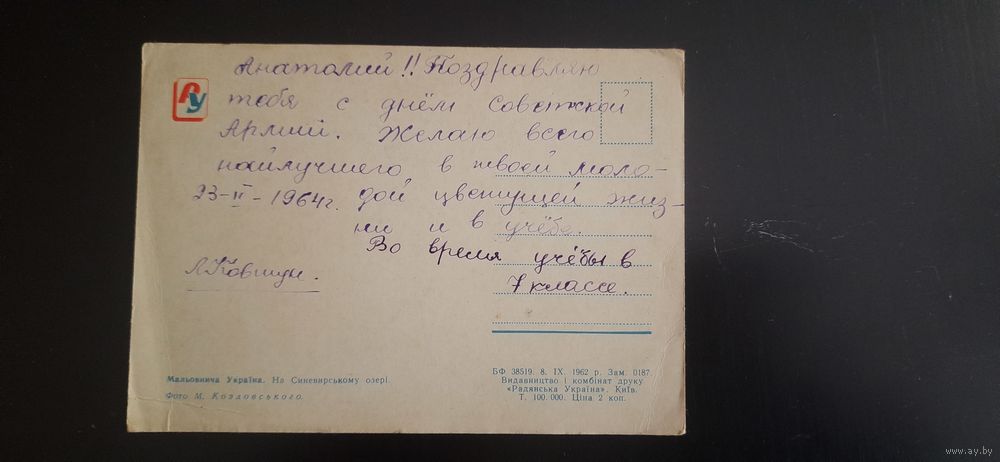 Анатолий!! Поздравляю
тебя с днём Советской
Армии. Желаю всего
наилучшего в твоей моло-
23-II-1964г. дой цветущей жиз-
ни и в учёбе.
Во время учёбы в
7 классе.
Л. Ковтун.
Мальовнича Україна. На Синевирському озері.
Фото М. Козловського.
БФ 38519. 8. IX. 1962 р. Зам. 0187
Видавництво і комбінат друку
«Радянська Україна». Київ.
Т. 100.000. Ціна 2 коп.
www.ay.by